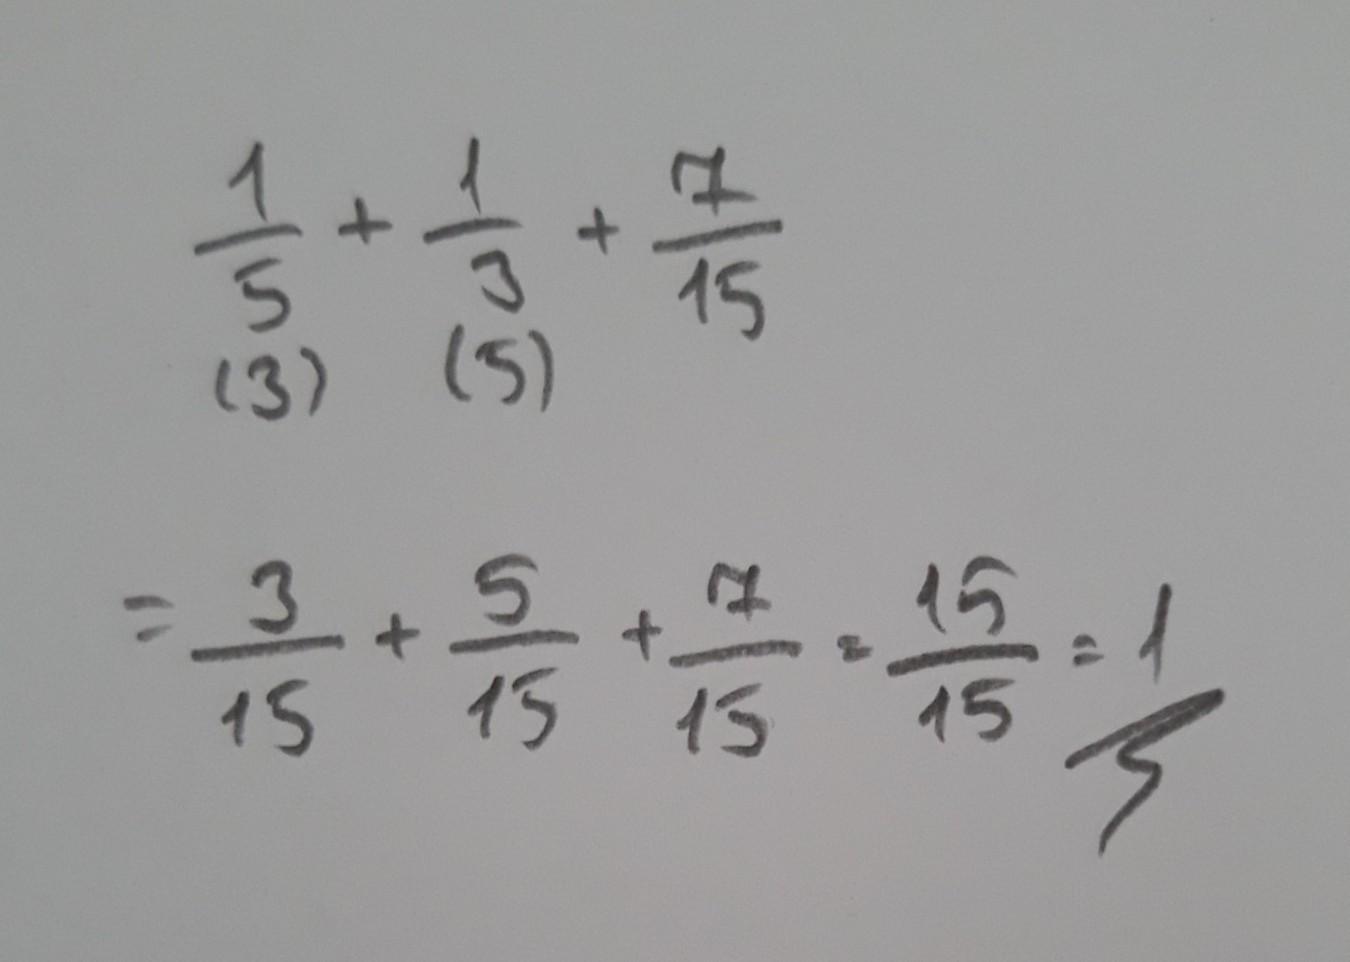 1/5 + 1/3 + 7/15
(3) (5)
= 3/15 + 5/15 + 7/15 = 15/15 = 1